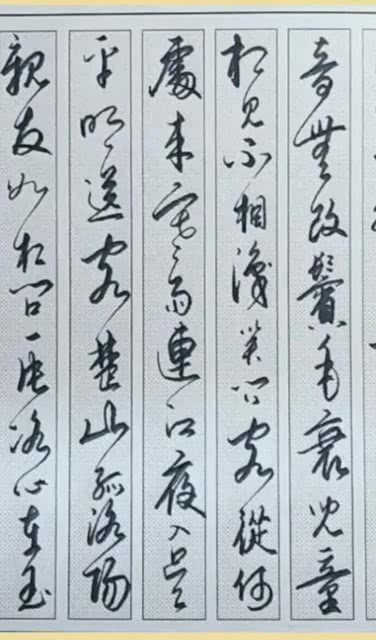 音無改鬢毛衰兒童
相見不相識笑問客從何
處来寒雨連江夜入吴
平明送客楚山孤洛陽
親友如相問一片冰心在玉